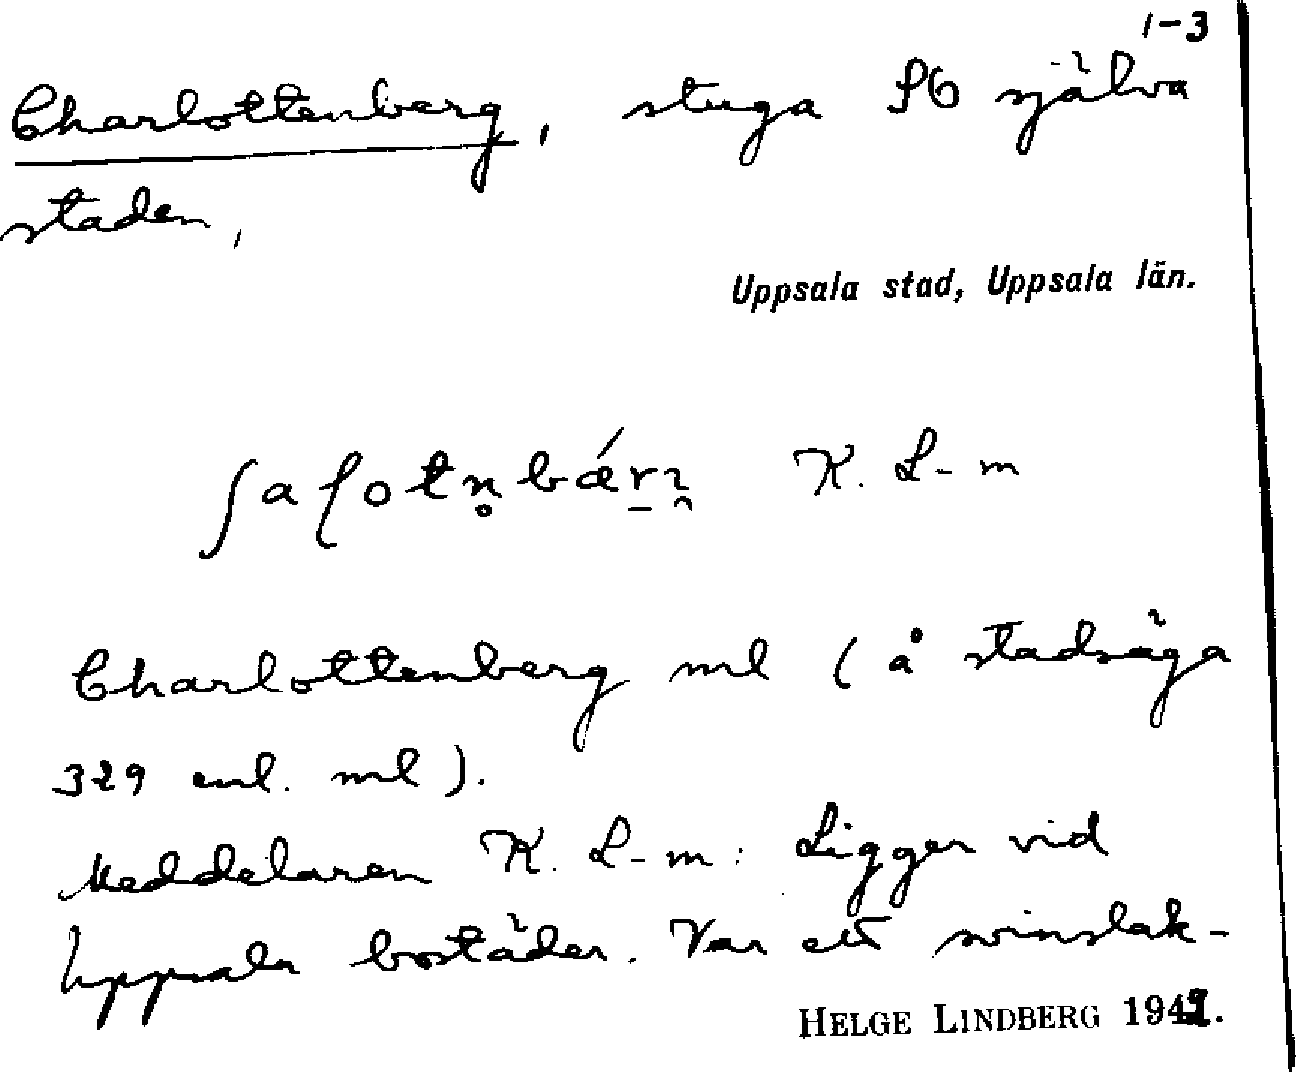 1-3
Charlottenberg, stuga SO själva
staden,
Uppsala stad, Uppsala län.
K. L-m
Charlottenberg ml (å stadsäga
329 enl. ml).
Meddelaren K. L-m: Ligger vid
Uppsala bostäder. Var ett svinslak-
HELGE LINDBERG 1949.